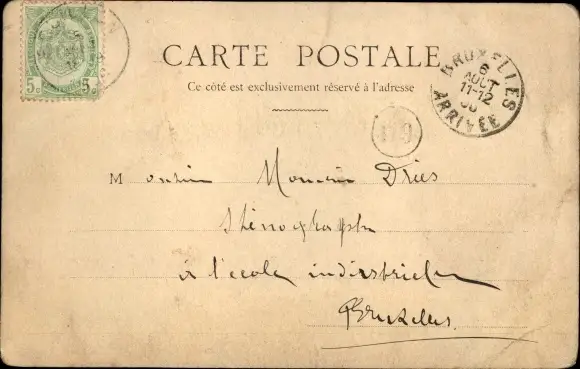 CARTE POSTALE
Ce côté est exclusivement réservé à l'adresse
5c 5c
BRUXELLES
6
AOUT
11-12
ARRIVÉE
Monsieur Dries
Sténographe
à l'école industrielle
Bruxelles